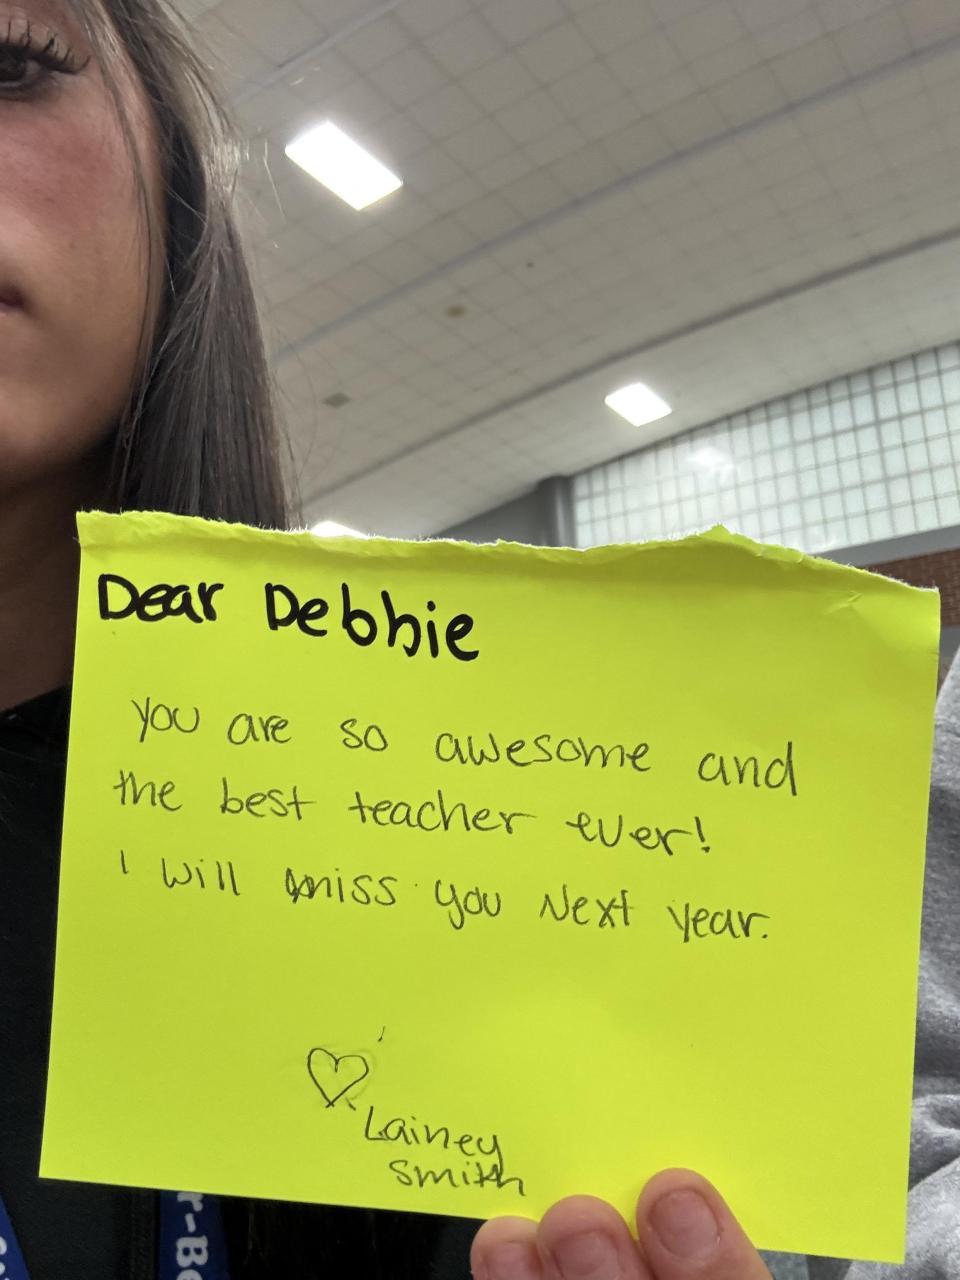 Dear Debbie
you are so awesome and
the best teacher ever!
I will miss you Next year.
Lainey
Smith
r-Be